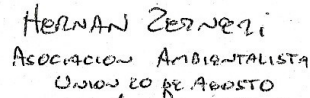 HERNAN ZERNERI
ASOCIACION AMBIENTALISTA
UNION 20 DE AGOSTO